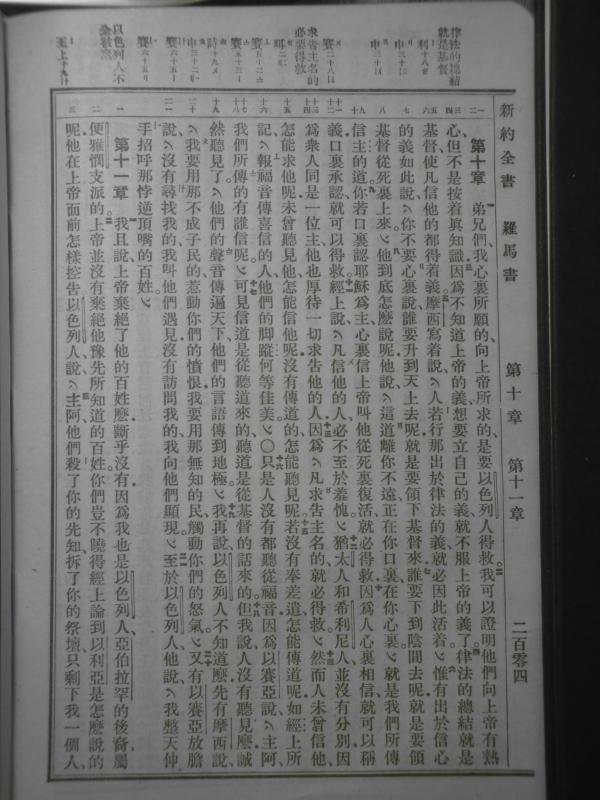 新約全書 羅馬書 第十章 第十一章 二百零四
律法的總結
就是基督
求告主名的
必要得救
以色列人不
第十章 弟兄們我心裏所願的向上帝所求的是要以色列人得救我可以證明他們向上帝有熱
心但不是按着真知識因爲不知道上帝的義想要立自己的義就不服上帝的義了律法的總結就是
基督使凡信他的都得着義摩西寫着說人若行那出於律法的義就必因此活着惟有出於信心
的義如此說你不要心裏說誰要升到天上去呢就是要領下基督來誰要下到陰間去呢就是要領
基督從死裏上來他到底怎麽說呢他說這道離你不遠正在你口裏在你心裏就是我們所傳
信主的道你若口裏認耶穌爲主心裏信上帝叫他從死裏復活就必得救因爲人心裏相信就可以稱
義口裏承認就可以得救經上說凡信他的人必不至於羞愧猶太人和希利尼人並沒有分別因
爲衆人同是一位主他也厚待一切求告他的人因爲凡求告主名的就必得救然而人未曾信他
怎能求他呢未曾聽見他怎能信他呢沒有傳道的怎能聽見呢若沒有奉差遣怎能傳道呢如經上所
記報福音傳喜信的人他們的脚蹤何等佳美〇只是人沒有都聽從福音因爲以賽亞說主阿
我們所傳的有誰信呢可見信道是從聽道來的聽道是從基督的話來的但我說人沒有聽見麽誠
然聽見了他們的聲音傳遍天下他們的言語傳到地極我再說以色列人不知道麽先有摩西說
我要用那不成子民的惹動你們的憤恨我要用那無知的民觸動你們的怒氣又有以賽亞放膽
說沒有尋找我的我叫他們遇見沒有訪問我的我向他們顯現至於以色列人他說我整天伸
手招呼那悖逆頂嘴的百姓
第十一章 我且說上帝棄絕了他的百姓麽斷乎沒有因爲我也是以色列人亞伯拉罕的後裔屬
便雅憫支派的上帝並沒有棄絕他豫先所知道的百姓你們豈不曉得經上論到以利亞是怎麽說的
呢他在上帝面前怎樣控告以色列人說主阿他們殺了你的先知拆了你的祭壇只剩下我一個人